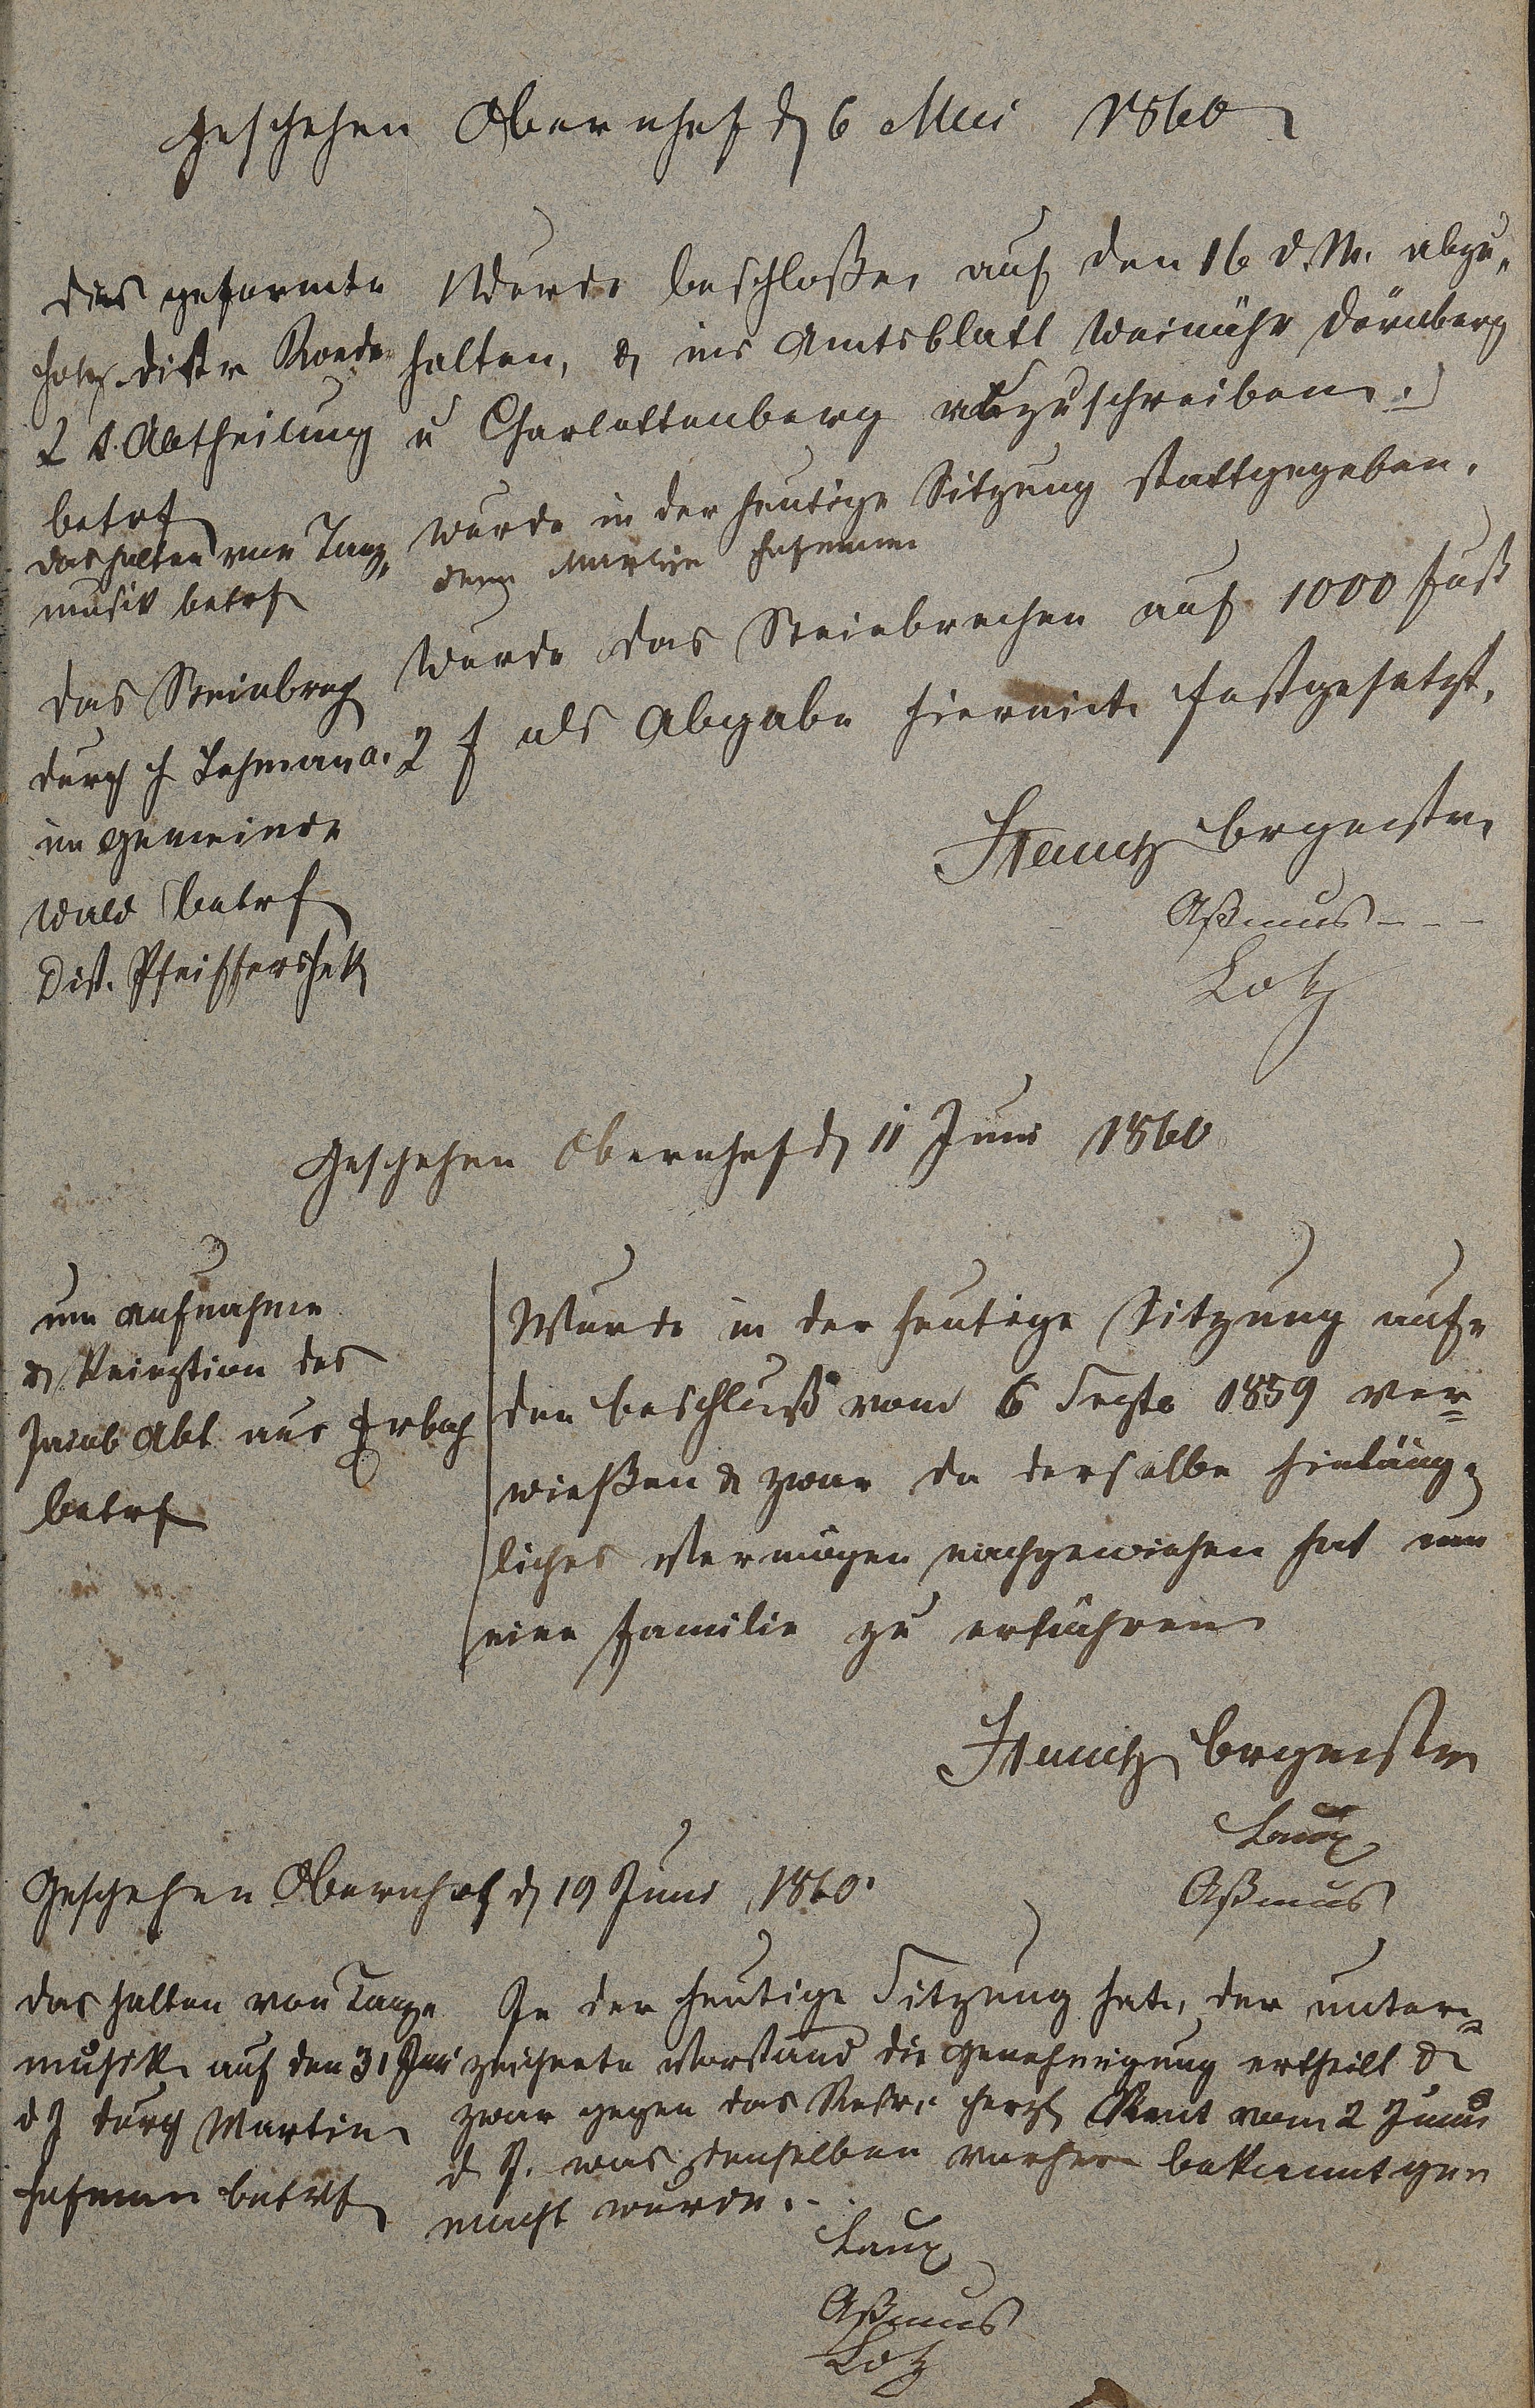 Geschehen Obernhof d 6 Mai 1860
Das geformte
Holz. Distr Rode
2 t. Abtheilung
betrf
Wurde beschloßen auf den 16 d. M. abzu-
halten, & ins Amtsblatt Weinähr Dörnberg
u Charlottenberg abzuschreiben.
das halten von Tanz-
musik betrf
wurde in der heutige Sitzung stattgegeben.
dem Martin
das Steinbrech
durch H Lehman a.
im Gemeinde
Wald betrf
Dist. Pfeiffersheck
Wurde das Steinbrechen auf 1000 Fuß
2 f als Abgabe hiermit festgesetzt.
Brgmeister
Aßmus
Lotz
Geschehen Obernhof d 11 Juni 1860
um Aufnahme
& Reception des
Jacob Abt aus Erbach
betrf
Wurde in der heutige Sitzung auf
den Beschluß vom 6 Septb 1859 ver-
wießen & zwar da derselbe hinläng-
liches Vermögen nachgewiesen hat um
eine Familie zu ernähren
Brgmeister
Laux
Aßmus
Geschehen Obernhof d 19 Juni 1860.
das halten von Tanz-
musik auf den 31 Juni
d J durch Martin
betrf
In der heutige Sitzung hat, der unter-
zeichnete Vorstand die Genehmigung ertheilt &
zwar gegen das Rescr. Herzl Amt vom 2 Juni
d J. was denselben vorher bekannt ge-
macht wurde.
Laux
Aßmus
Lotz